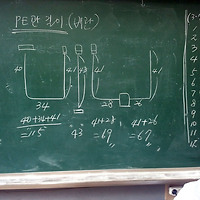 PE관 길이 (배관)
40 41 43 41 41
34 28 26
40+34+41
=115
43
41+28
=69
41+26
=67
2
3
4
5
6
7
8
9
10
11